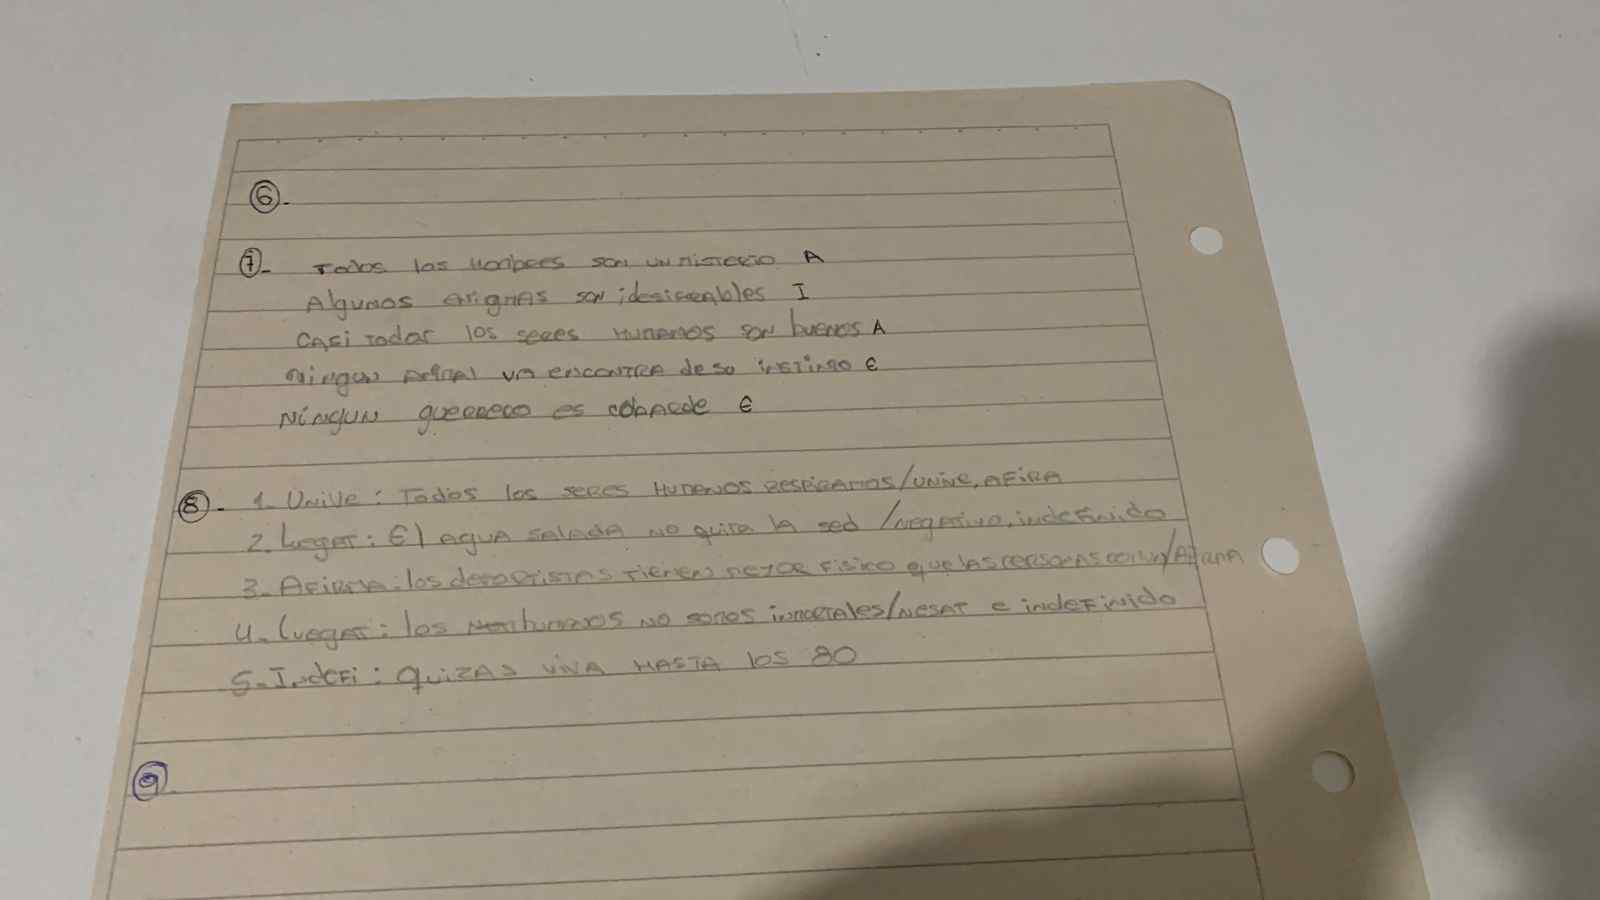 6.
7- Todos los Hombres son un misterio A
Algunos enigmas son idesifrables I
Casi todos los seres Humanos son buenos A
ningun animal va encontra de su instinto E
Ningun guerrero es cobarde E
8- 1. Unive: Todos los seres Humanos respiramos/unive, afira
2. El agua salada no quita la sed /negativo, indefinido
3. Afirma: los deportistas tienen mejor fisico que las personas
4. los humanos no somos inmortales/negat e indefinido
5. Indefi: Quizas viva hasta los 80
9.